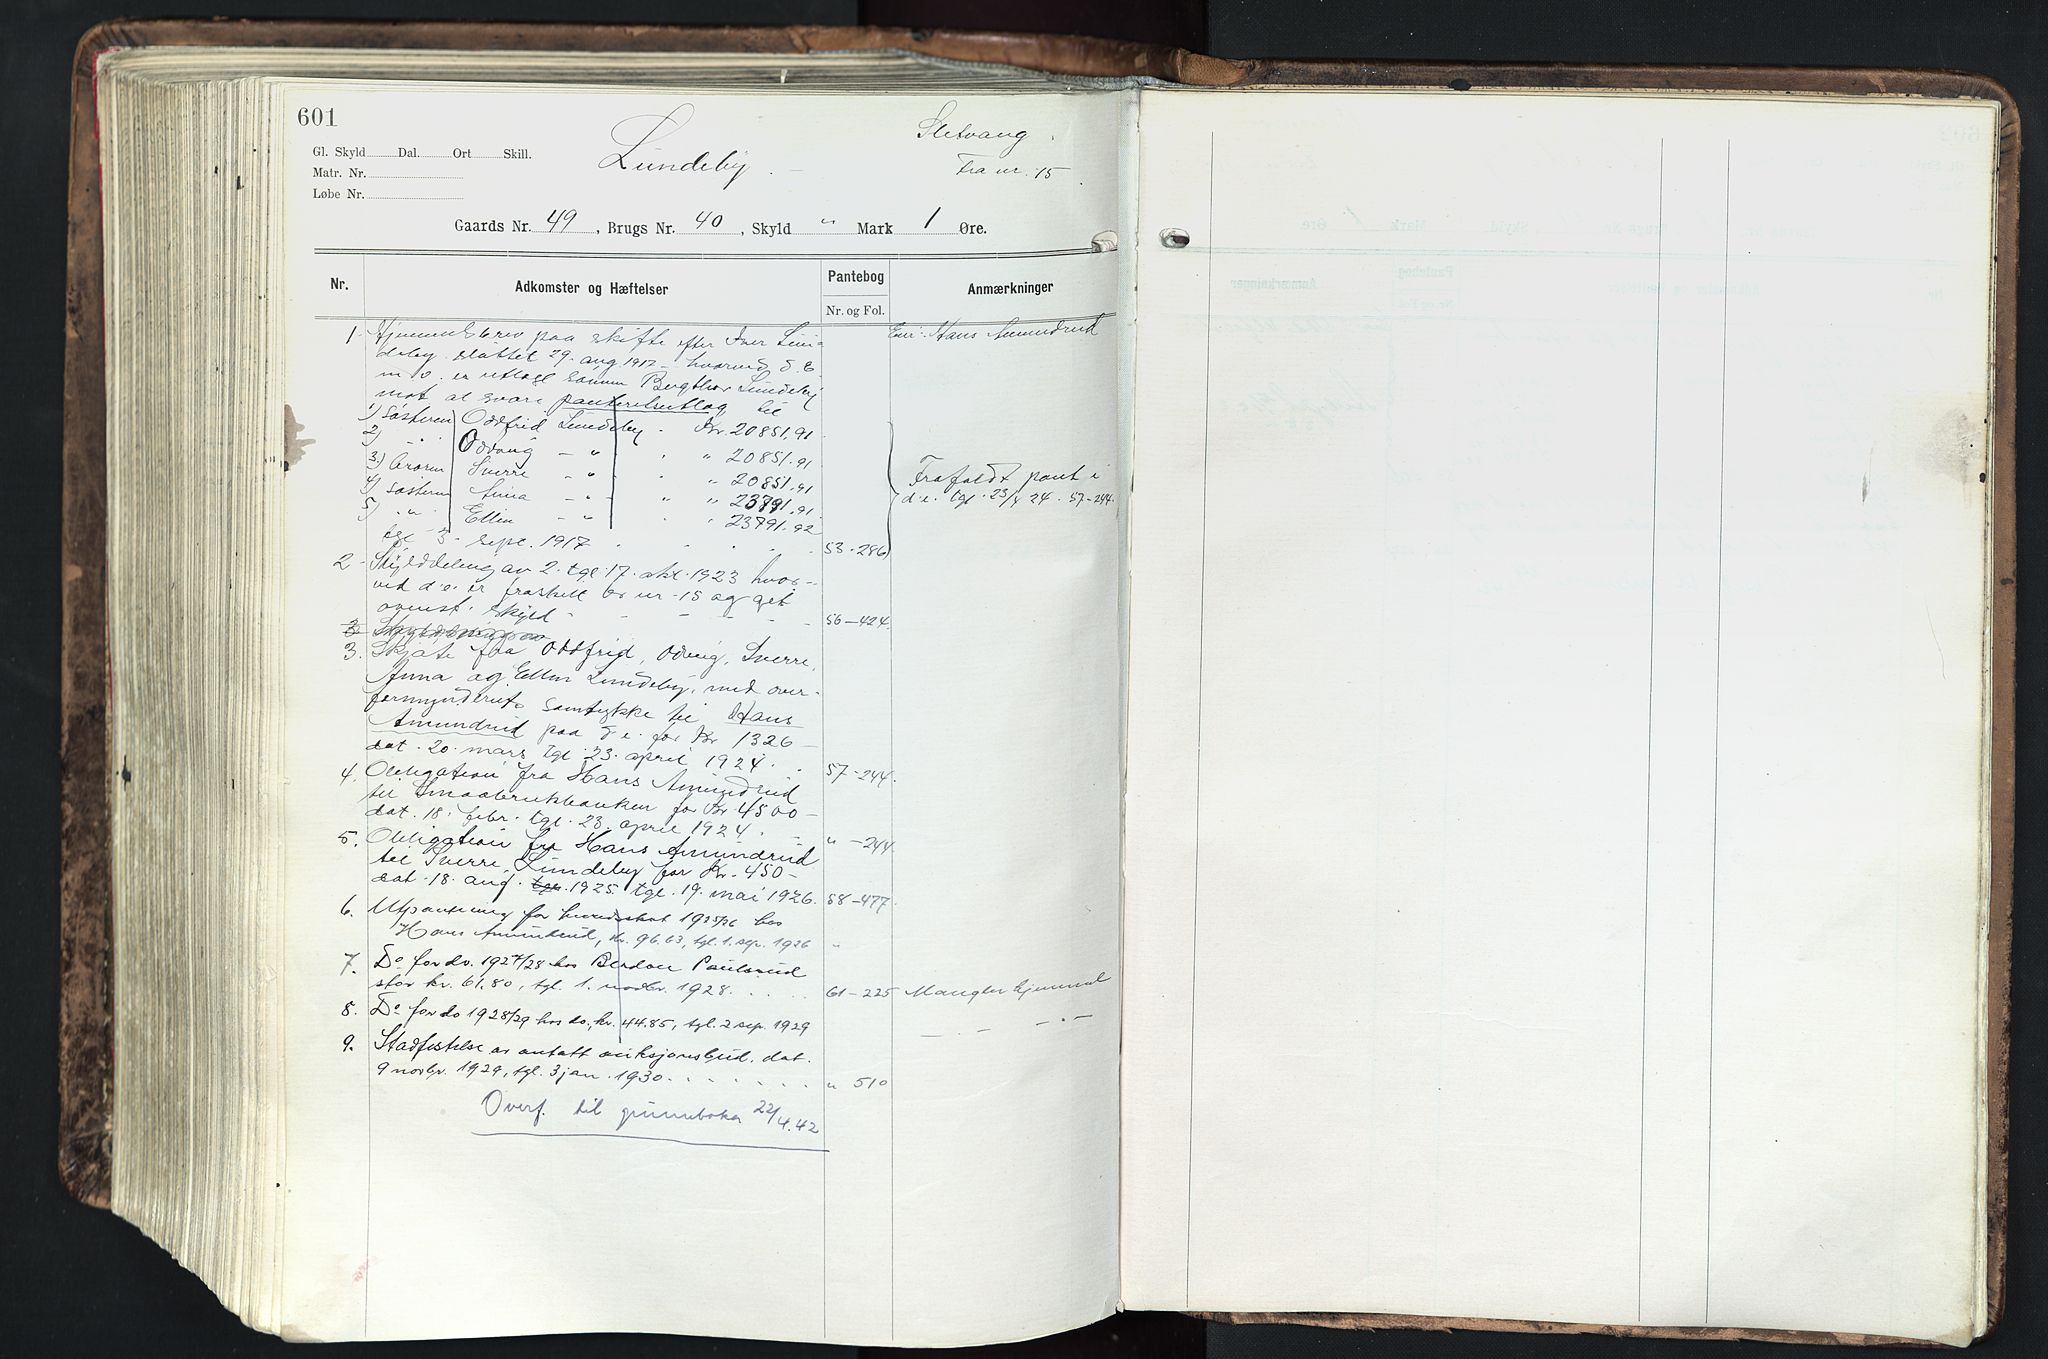 601
Gl. Skyld Dal. Ort Skill.
Matr. Nr.
Løbe Nr.
Lundeby.
Sletvang.
Fra nr. 15.
Gaards Nr. 49, Brugs Nr. 40, Skyld " Mark 1 Øre.
Nr. Adkomster og Hæftelser Pantebog Anmærkninger
Nr. og Fol.
1. Hjemmelsbrev paa skifte efter Iver Lun- Eier: Hans Amundrud
deby sluttet 29. aug 1917 hvorved d. e.
m. v. er utlagt sønnen Bergthor Lundeby
mot at svare panteretsutlæg til
1) søsteren Oddfrid Lundeby. Kr. 20851,91
2) - " - Oddvug - " . " 20851.91
3) broren Sverre - " . " 20851.91
4) søsteren Anna - " - . " 23791.91
5) - " - Ellen - " . " 23791.92
tgl 3. sept. 1917 53-286
Frafaldt pant i
d. e. tgl. 23/4 24. 57-244
2 Skylddeling av 2. tgl. 17. okt. 1923 hvor-
ved d. e. er fraskilt br nr. 15 og git
ovenst. skyld 56-424.
3. Skjøte fra Oddfrid, Odvug, Sverre,
Anna og Ellen Lundeby, med over-
formynderiets samtykke til Hans
Amundrud paa d. e. for Kr 1326-
dat. 20. mars tgl. 23. april 1924. 57-244.
4. Obligation fra Hans Amundrud
til Smaabrukbanken for Kr. 4500-
dat. 18. febr. tgl. 23. april 1924. " -244.
5. Obligation fra Hans Amundrud
til Sverre Lundeby for Kr. 450-
dat. 18. aug. tgl. 1925. tgl. 19. mai 1926. 58-477.
6. Utpantning for herredsskat 1925/26 hos
Hans Amundrud, kr. 96.63, tgl. 1. sep. 1926 "
7. Do for do. 1927/28 hos Paulsrud
stor kr. 61.80, tgl. 1. novbr. 1928. 61-225 Mangler hjemmel
8. Do for do 1928/29 hos do, kr. 44.85, tgl. 2 sep. 1929 - . - - . -
9. Stadfestelse av antatt auksjonsbud, dat.
9 novbr. 1929, tgl. 3 jan. 1930. " 510
Overf. til grunnboka 22/4.42